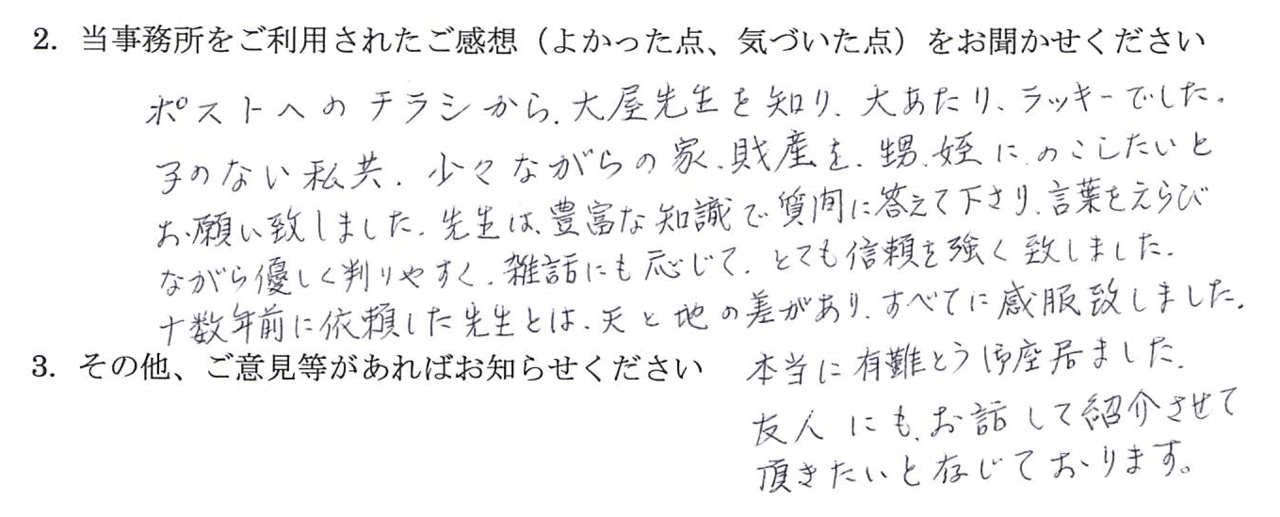 2. 当事務所をご利用されたご感想（よかった点、気づいた点）をお聞かせください
ポストへのチラシから、大屋先生を知り、大あたり、ラッキーでした。
子のない私共、少々ながらの家、財産を、甥、姪に、のこしたいと
お願い致しました。先生は、豊富な知識で質問に答えて下さり、言葉をえらび
ながら優しく判りやすく、雑話にも応じて、とても信頼を強く致しました。
十数年前に依頼した先生とは、天と地の差があり、すべてに感服致しました。
3. その他、ご意見等があればお知らせください
本当に有難とう御座居ました。
友人にも、お話して紹介させて
頂きたいと存じております。